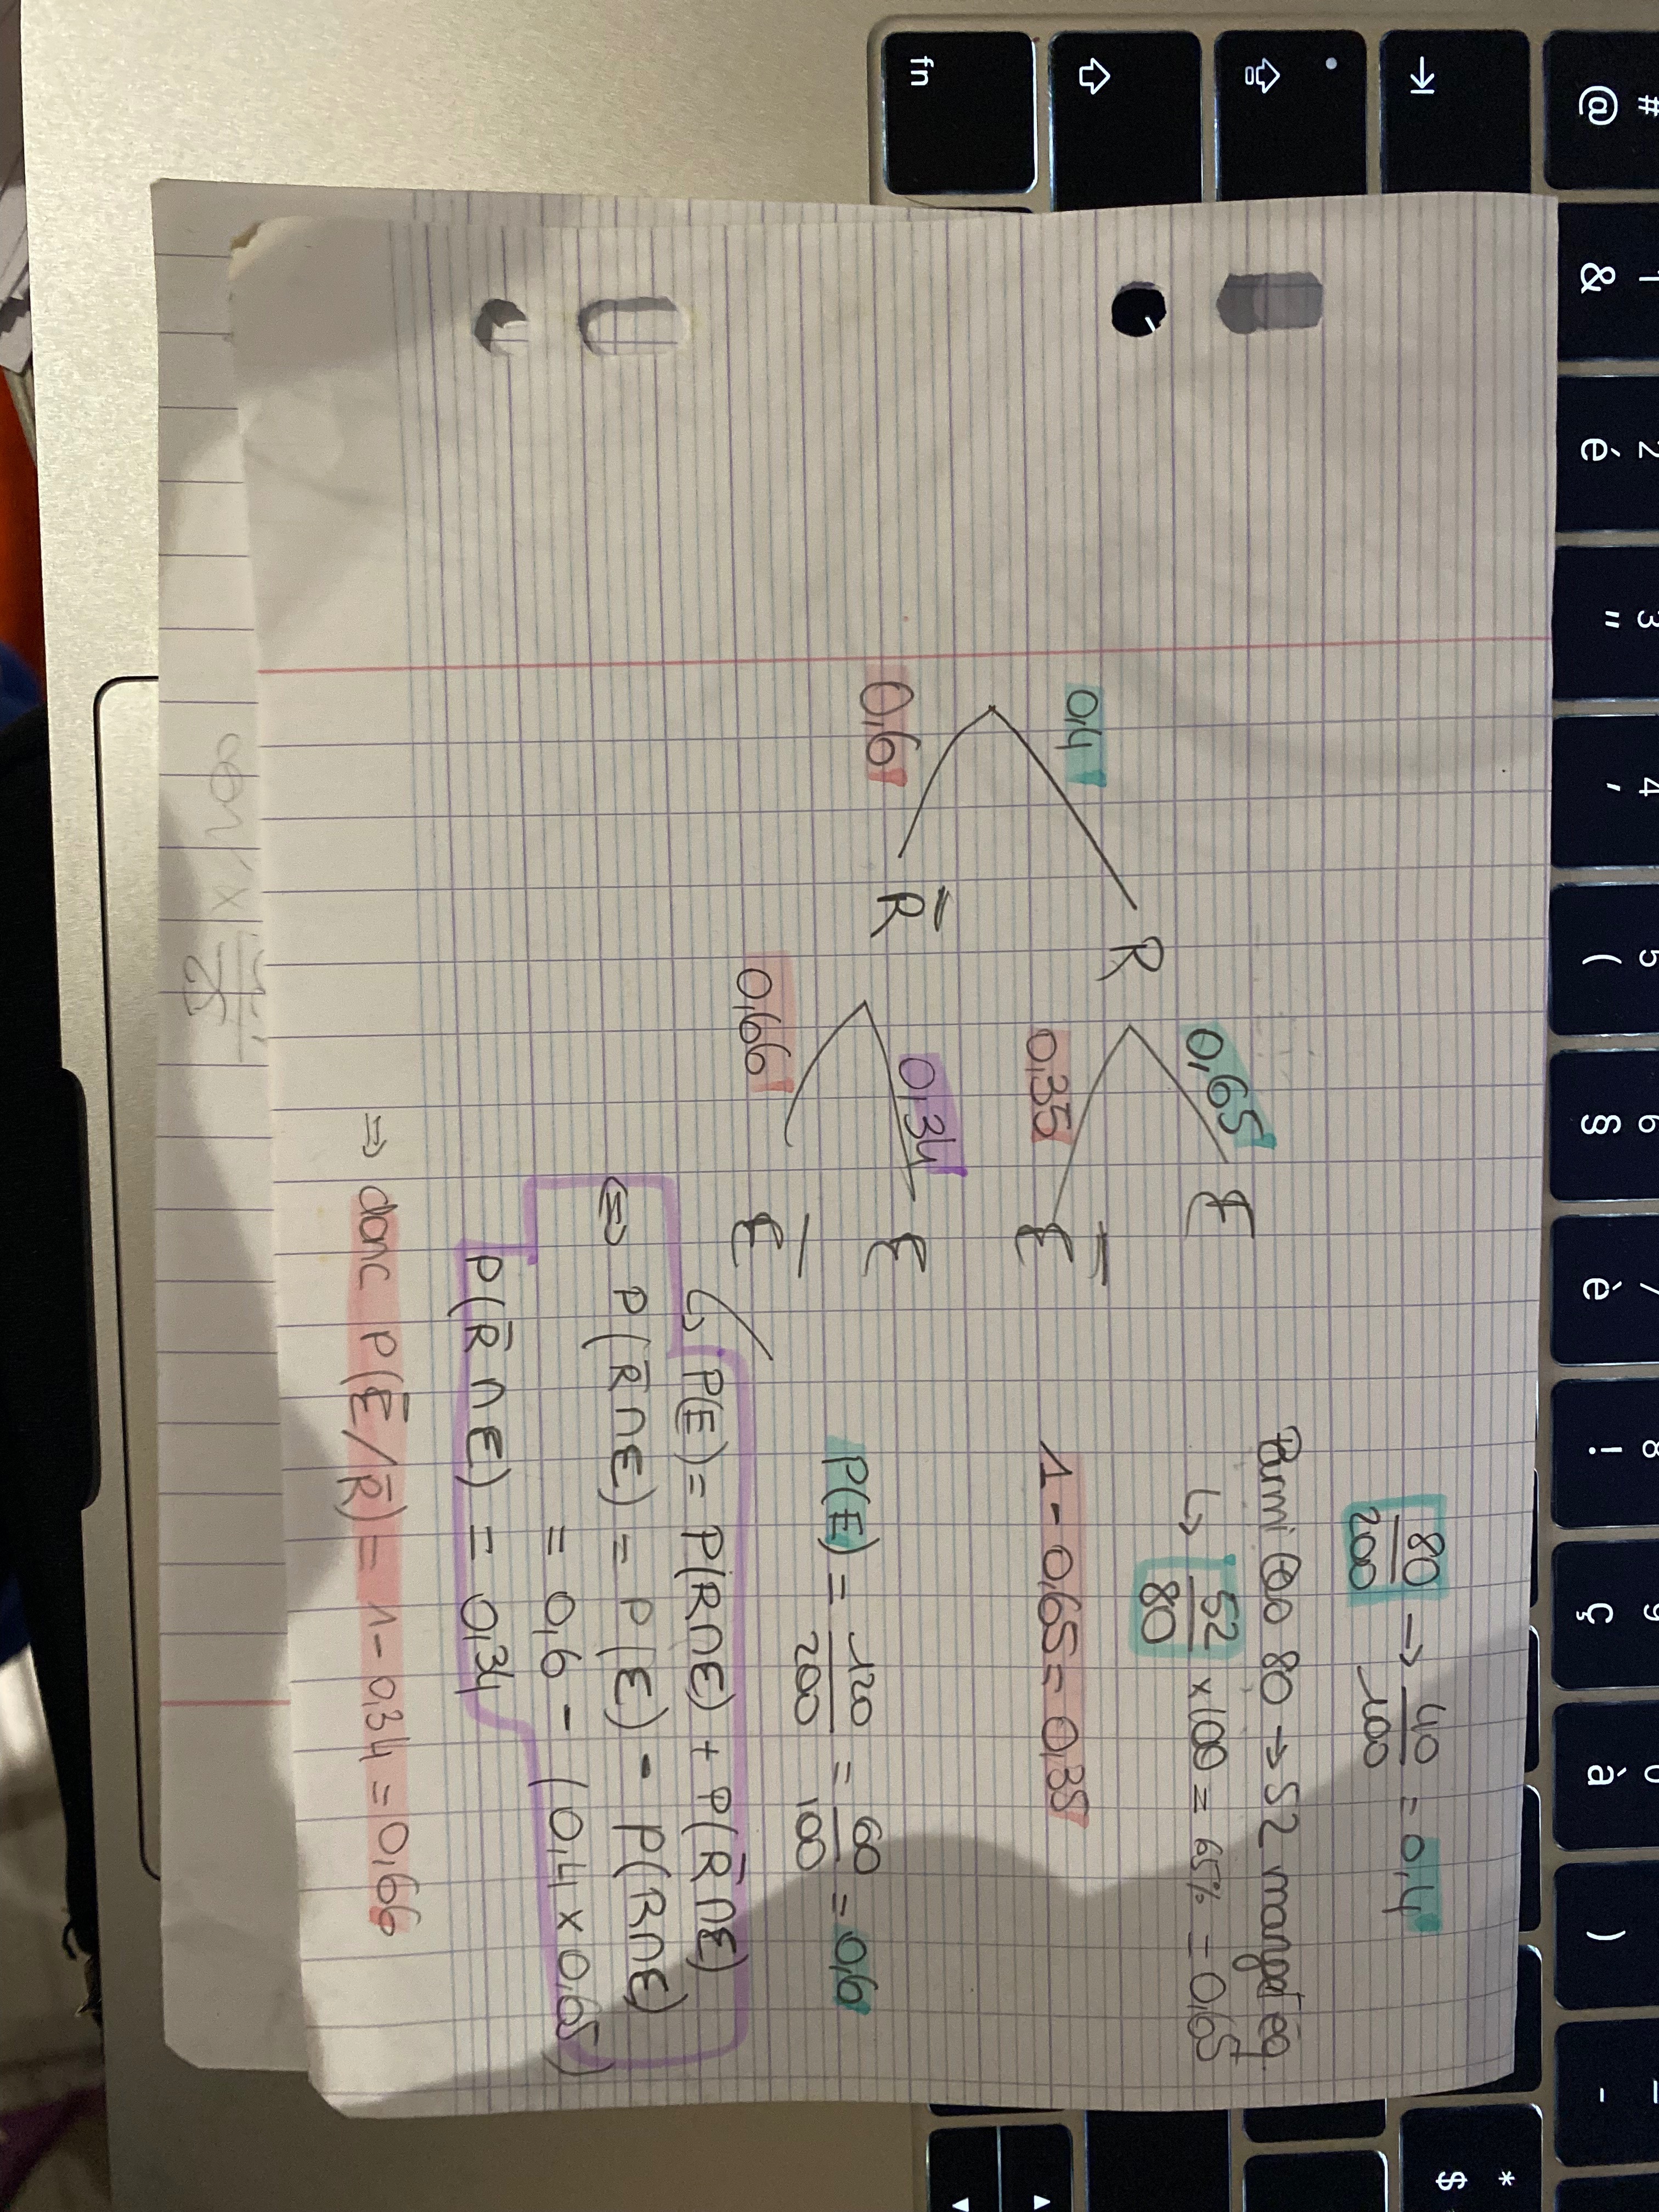 80/200 → 40/100 = 0,4
Parmi 80 → 52 manget eq.
↳ 52/80 x100 = 65% = 0,65
0,4
R
0,65
E
0,35
E̅
1 - 0,65 = 0,35
0,6
R̅
0,34
E
0,66
E̅
P(E) = 120/200 = 60/100 = 0,6
↳ P(E) = P(R∩E) + P(R̅∩E)
⇔ P(R̅∩E) = P(E) - P(R∩E)
= 0,6 - (0,4 x 0,65)
P(R̅∩E) = 0,34
⇒ donc P(E̅/R̅) = 1 - 0,34 = 0,66
# @
1 &
2 é
3 "
4 '
5 (
6 §
7 è
8 !
9 ç
0 à
)
-
* $
fn